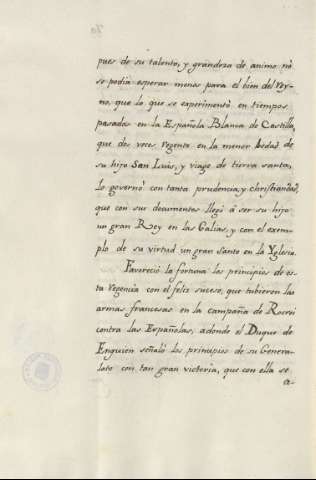 pues de su talento, y grandeza de animo nò
se podia esperar menos para el bien del rey-
no, que lo que se experimentò en tiempos
pasados en la Española Blanca de Castilla,
que dos veces regente en la menor hedad de
su hijo San Luis, y viage de tierra santa,
lo governò con tanta prudencia, y christiandad,
que con sus documentos llegò à ser su hijo
un gran Rey en las Galias, y con el exem-
plo de su virtud un gran Santo en la Yglesia.
Favoreciò la fortuna los principios de es-
ta regencia con el feliz suceso, que tubieron las
armas francesas en la campaña de Rocroi
contra las Españolas, adonde el Duque de
Enguien señalò los principios de su Genera-
lato con tan gran victoria, que con ella se
a-